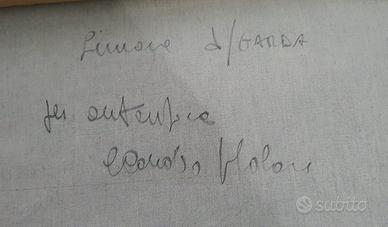 Limone d/GARDA
per autentica
subito